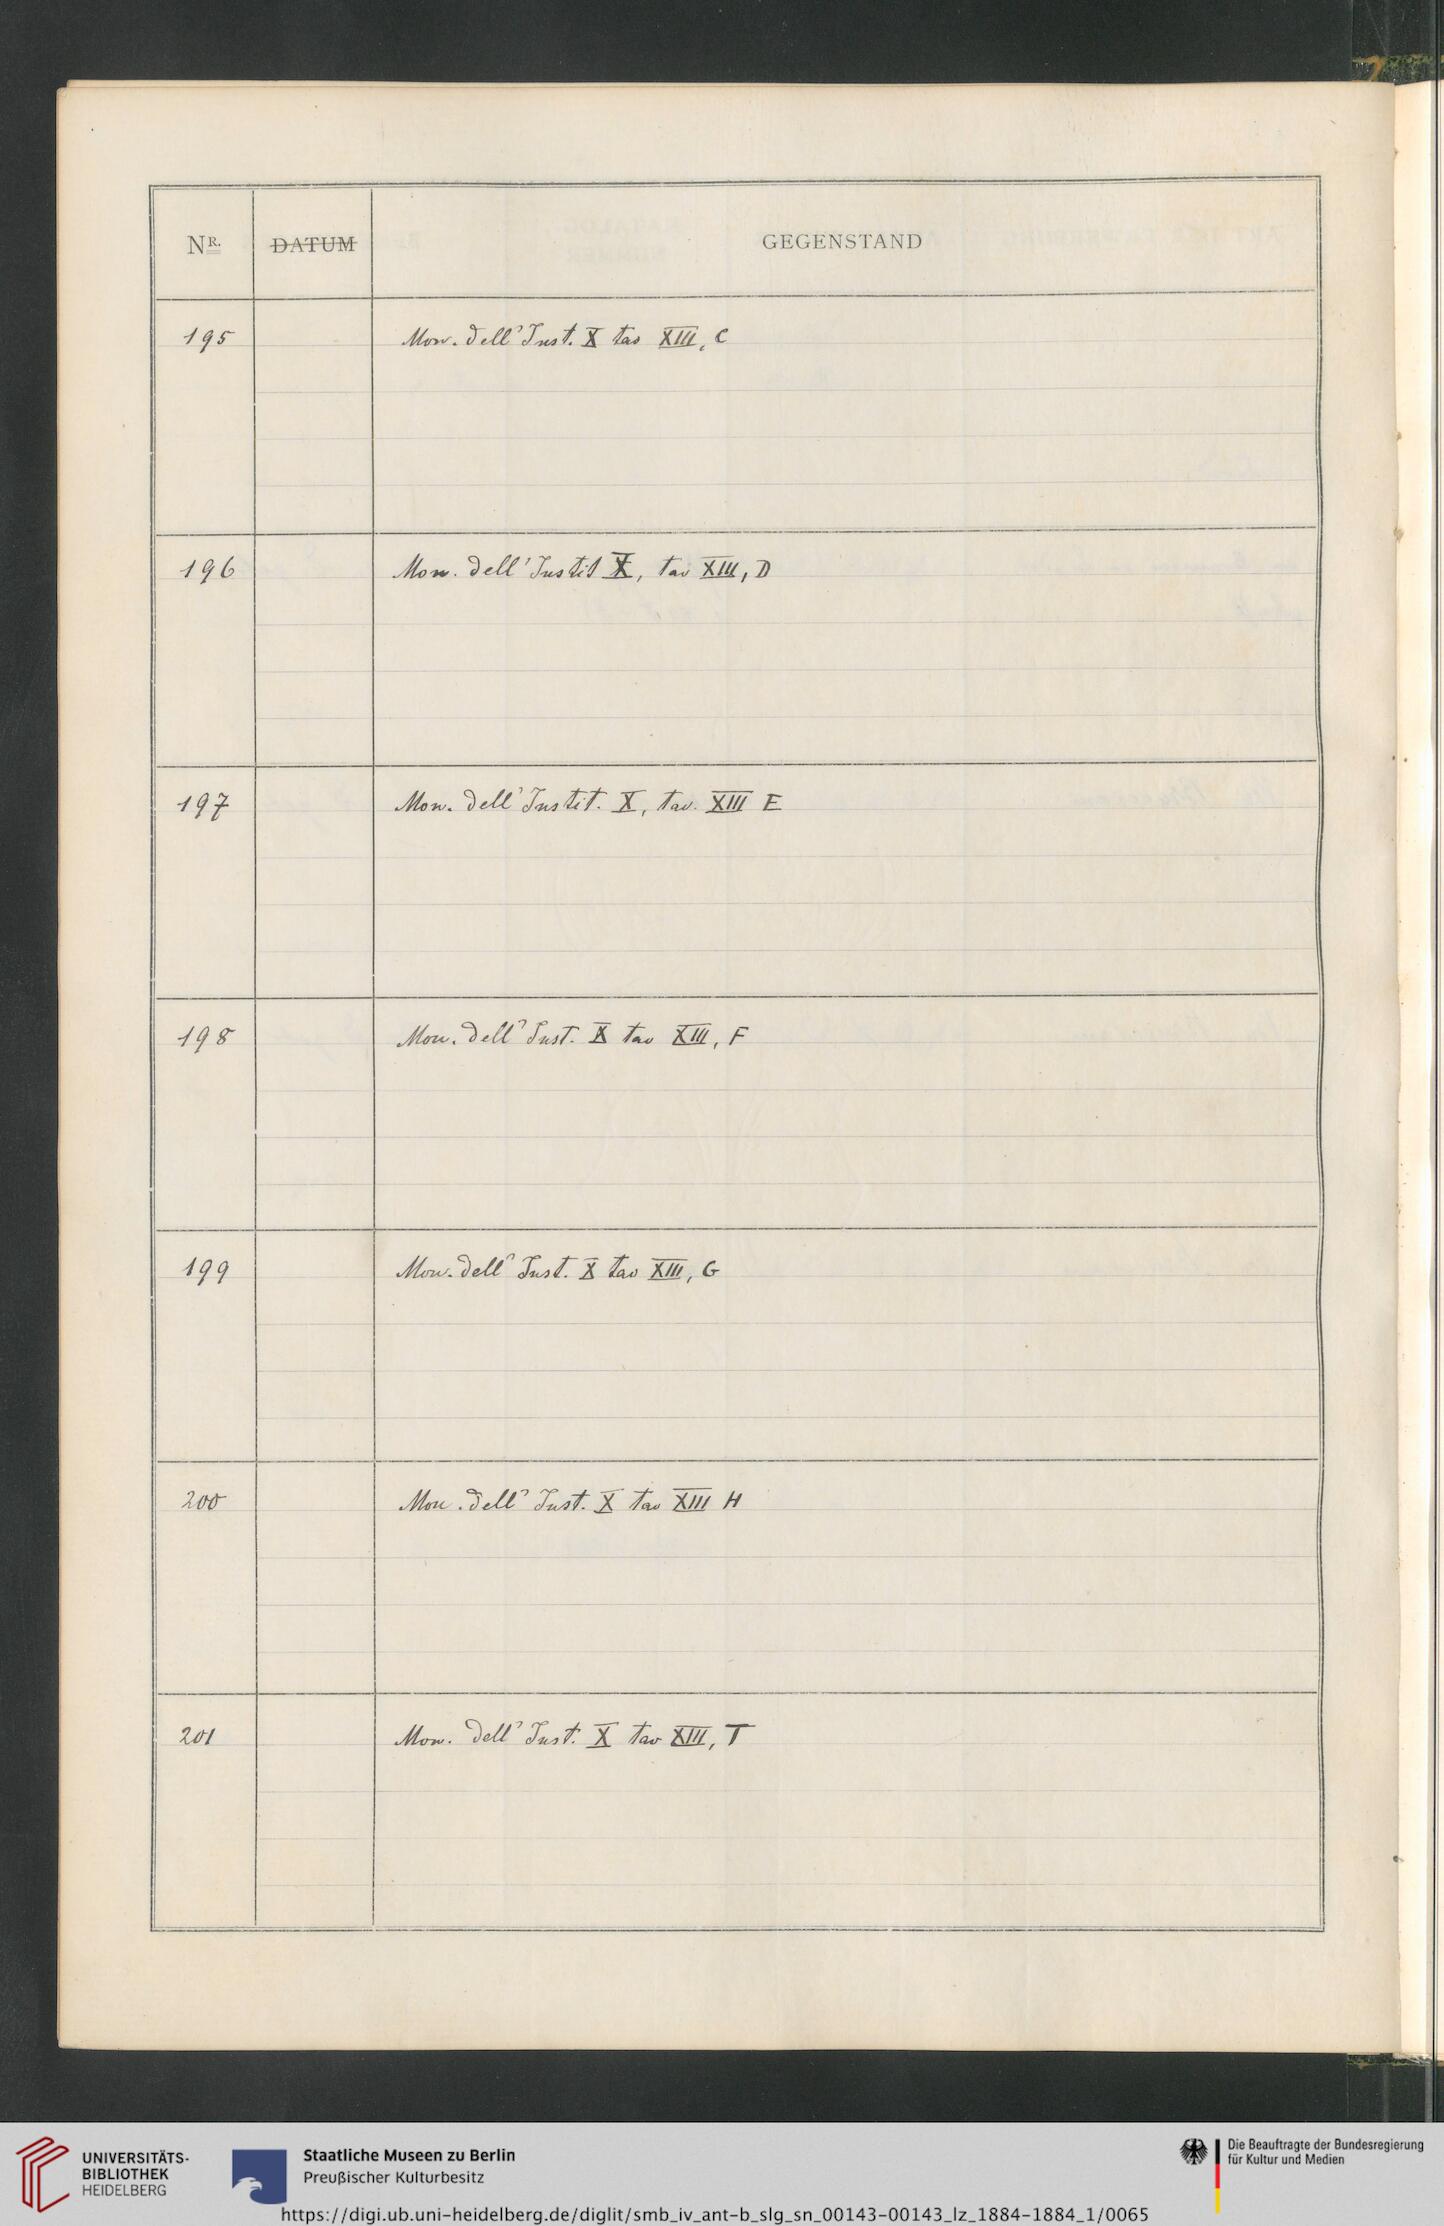 NR. DATUM GEGENSTAND
195 Mon. dell' Inst. X tav XIII, C
196 Mon. dell' Instit X, tav XIII, D
197 Mon. dell' Instit. X, tav. XIII E
198 Mon. dell' Inst. X tav XIII, F
199 Mon. dell' Inst. X tav XIII, G
200 Mon. dell' Inst. X tav XIII H
201 Mon. dell' Inst. X tav XIII, T
UNIVERSITÄTS-
BIBLIOTHEK
HEIDELBERG
Staatliche Museen zu Berlin
Preußischer Kulturbesitz
Die Beauftragte der Bundesregierung
für Kultur und Medien
https://digi.ub.uni-heidelberg.de/diglit/smb_iv_ant-b_slg_sn_00143-00143_lz_1884-1884_1/0065